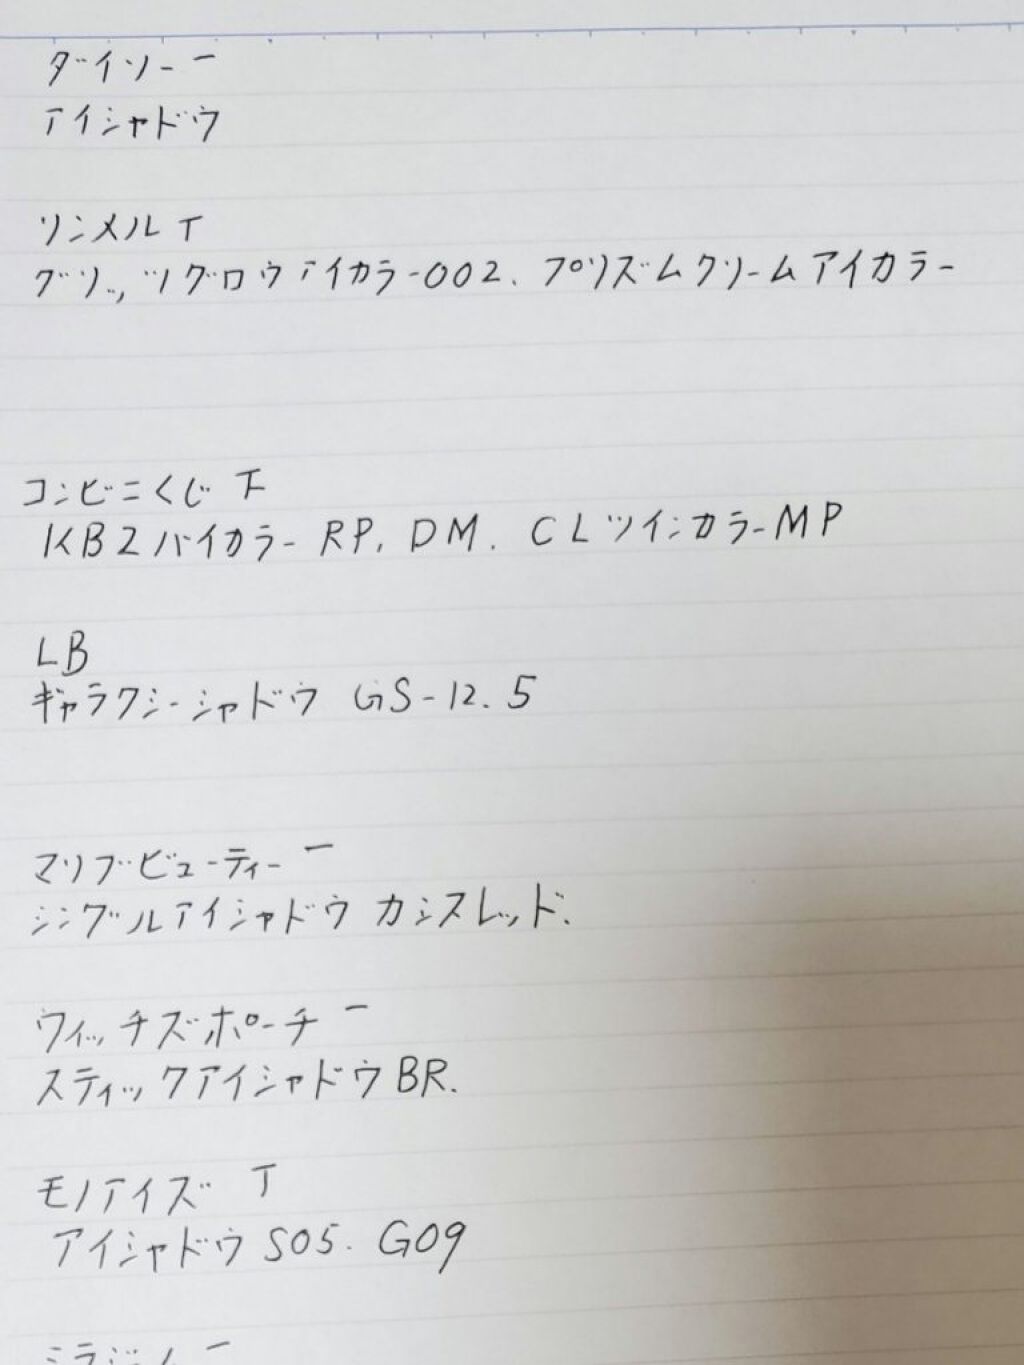 ダイソー 一
アイシャドウ
リンメル T
グリッツグロウアイカラー002. プリズムクリームアイカラー
コンビニくじ 下
KBスバイカラー RP. DM. CLツインカラーMP
LB
ギャラクシーシャドウ GS-12.5
マリブビューティー 一
シングルアイシャドウ カシスレッド.
ウィッチズポーチ 一
スティックアイシャドウBR.
モノアイズ T
アイシャドウ S05. G09